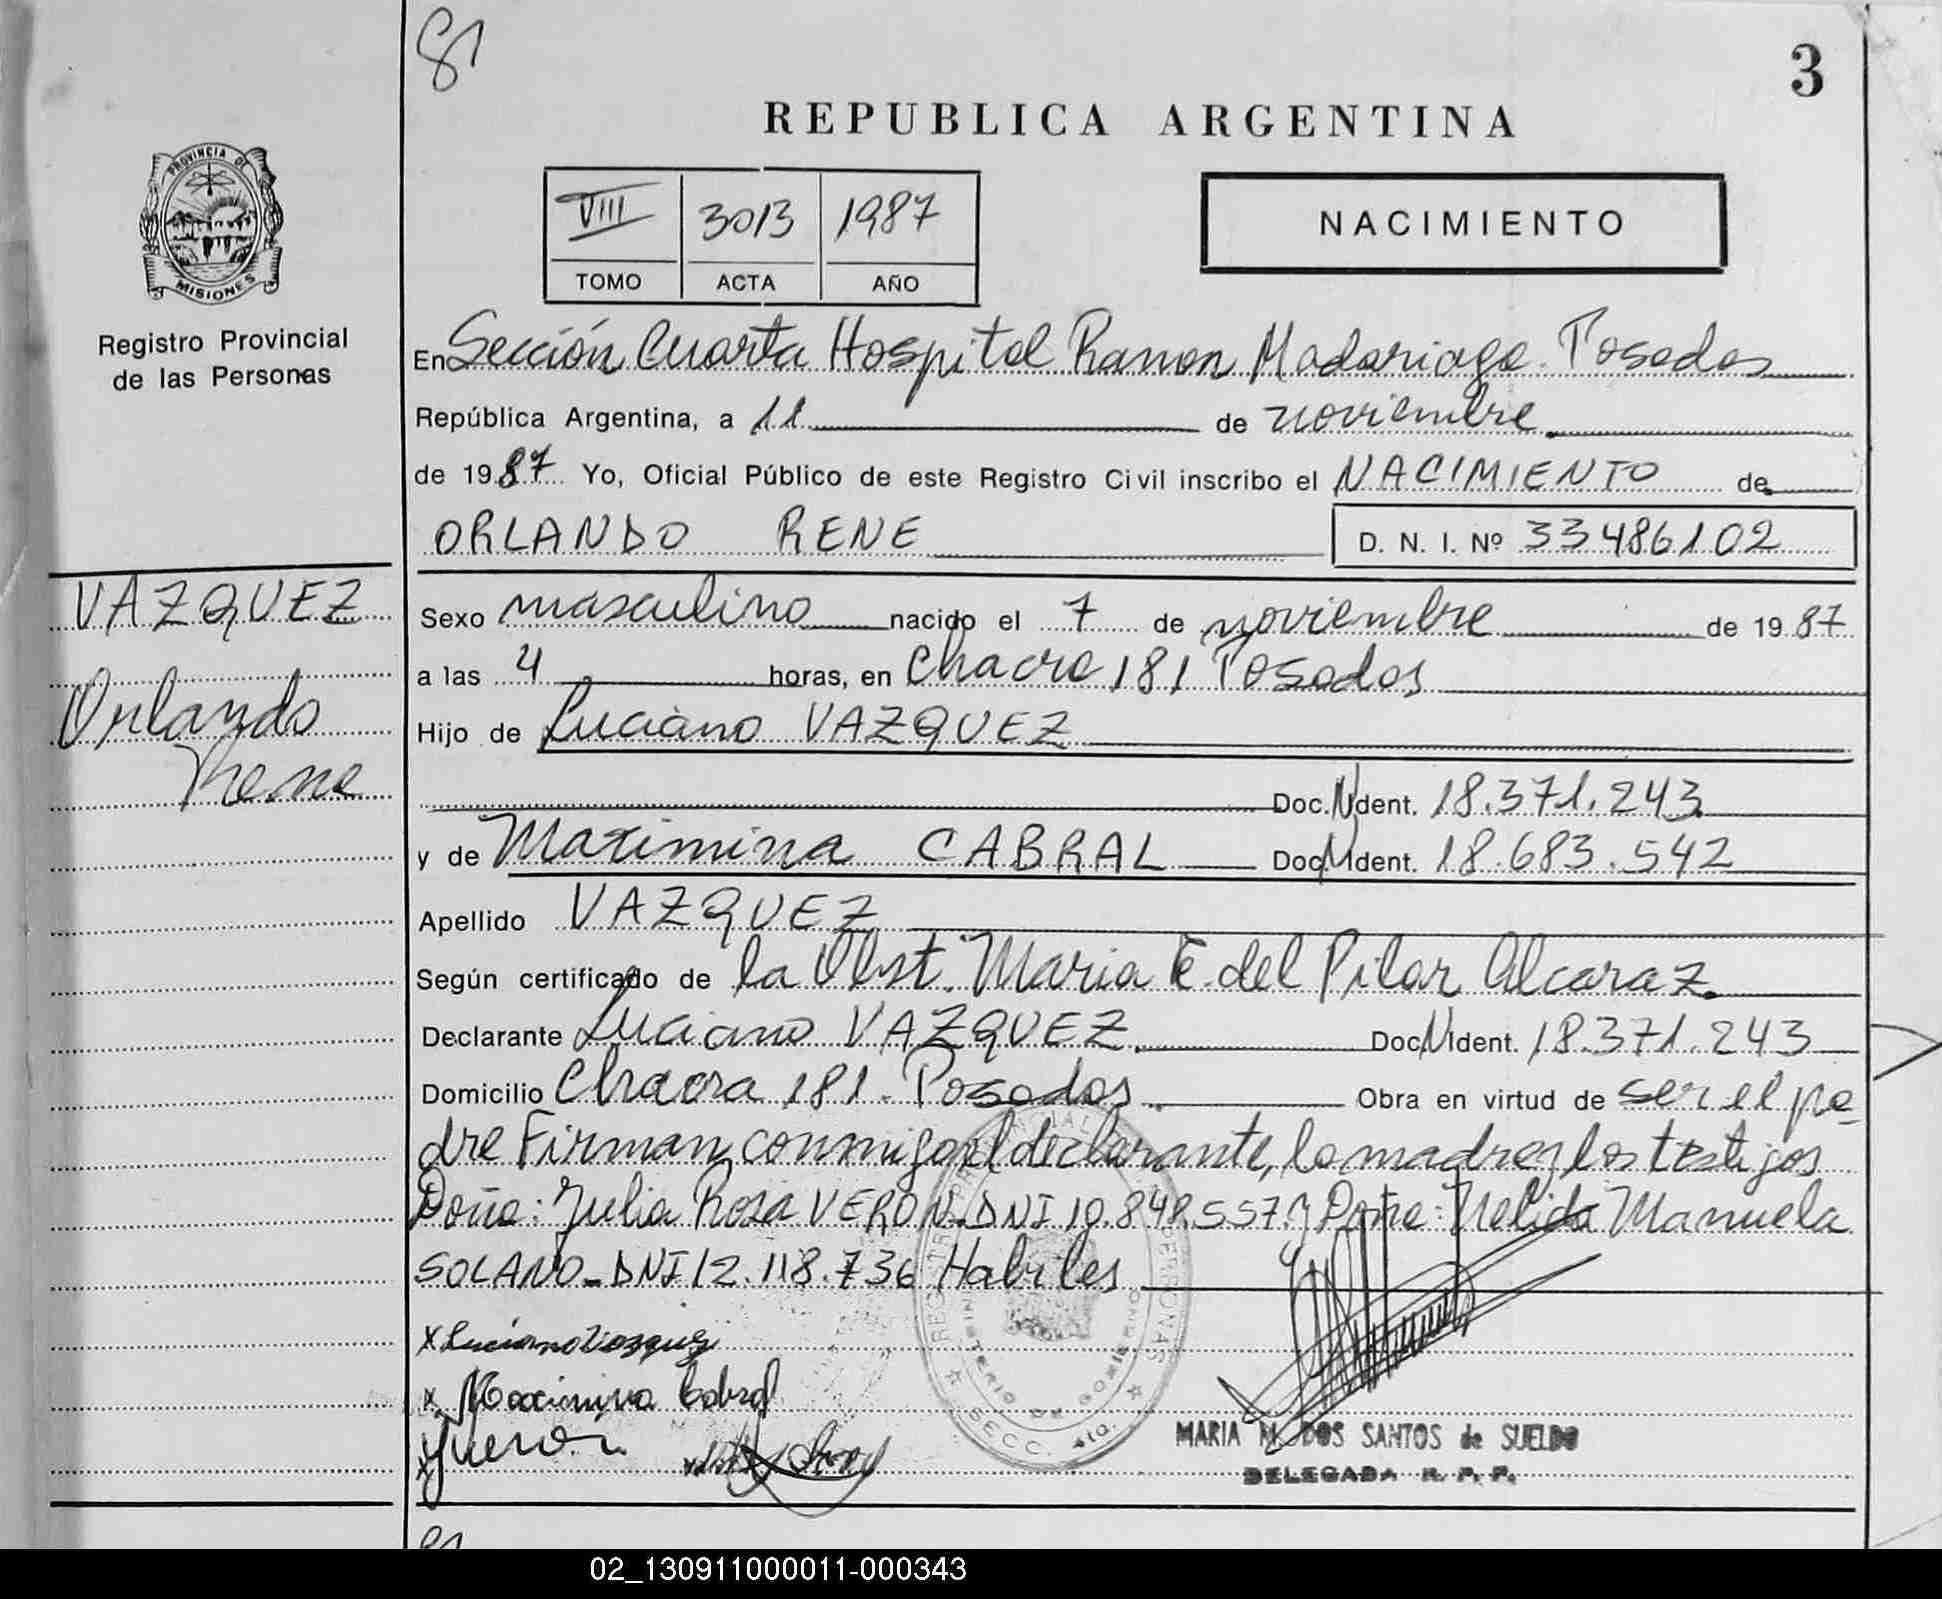 81
3
REPUBLICA ARGENTINA
PROVINCIA DE
MISIONES
VIII 3013 1987
TOMO ACTA AÑO
NACIMIENTO
Registro Provincial
de las Personas
En Sección Cuarta Hospital Ramon Madariaga. Posadas
República Argentina, a 11 de noviembre
de 1987 Yo, Oficial Público de este Registro Civil inscribo el NACIMIENTO de
ORLANDO RENE D. N. I. Nº 33486102
VAZQUEZ
Orlando
Rene
Sexo masculino nacido el 7 de noviembre de 1987
a las 4 horas, en Chacra 181 Posadas
Hijo de Luciano VAZQUEZ
Doc. Ident. 18.371.243
y de Maximina CABRAL Doc. Ident. 18.683.542
Apellido VAZQUEZ
Según certificado de la Obst. Maria E. del Pilar Alcaraz.
Declarante Luciano VAZQUEZ. Doc. Ident. 18.371.243
Domicilio Chacra 181. Posadas Obra en virtud de ser el pa-
dre Firman conmigo el declarante, la madre y los testigos
Doña: Julia Rosa VERON. DNI 10.848.557. y Doña: Nelida Manuela
SOLANO_DNI 12.118.736 Habiles
x Luciano Vazquez
x Maximina Cabral
MINISTERIO DE GOBIERNO
SECC. 4ta.
MARIA M. DOS SANTOS de SUELDO
DELEGADA R. P. P.
02_130911000011-000343